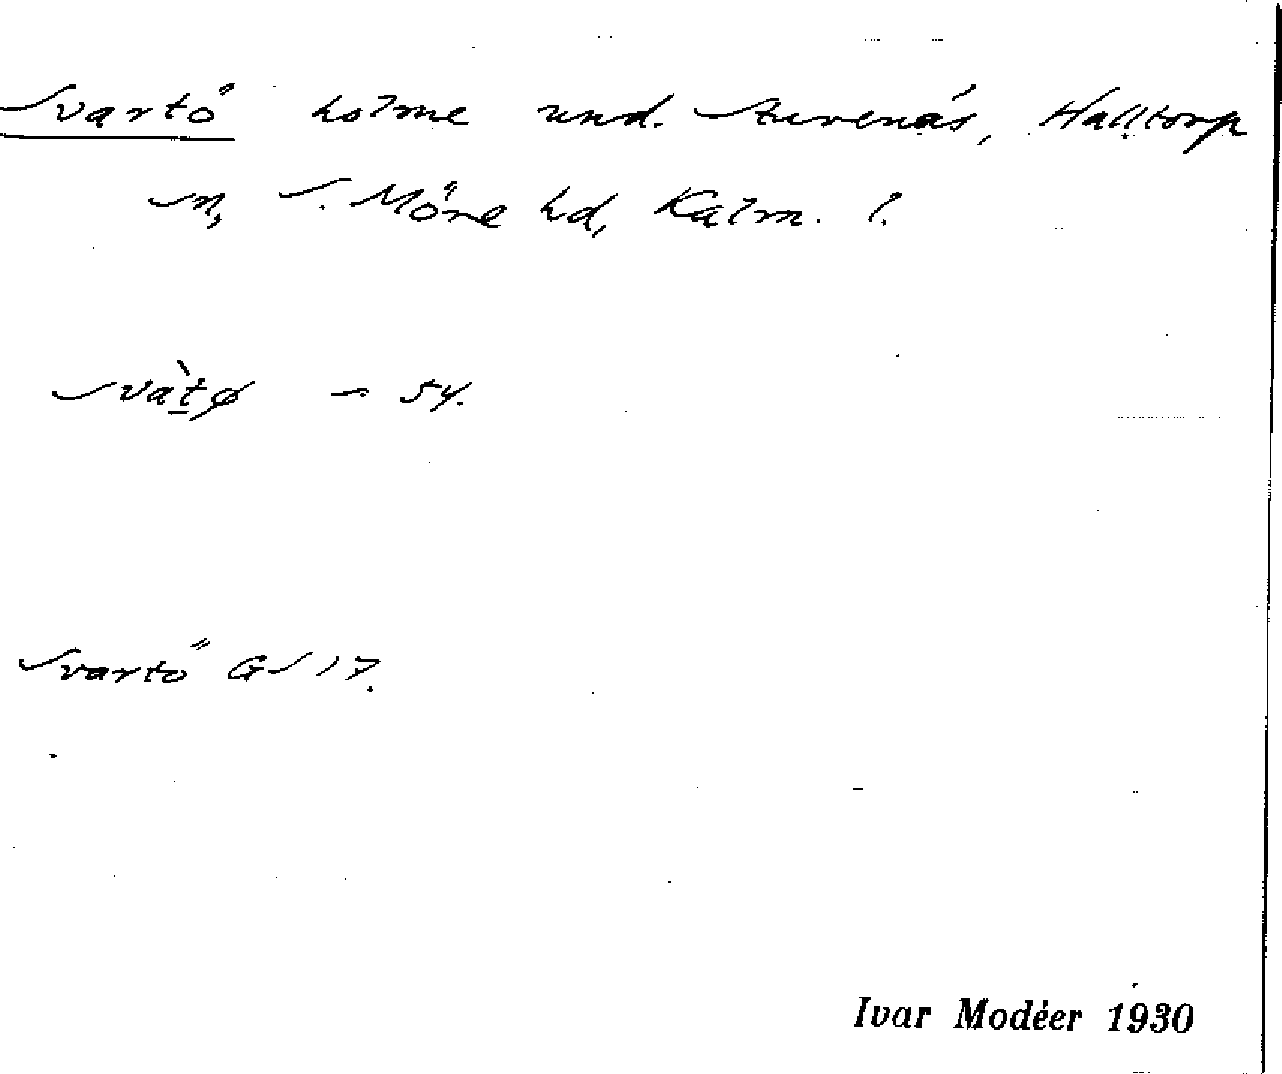 Svartö holme und. Stuvenäs, Halltorp
sn, S. Möre hd, Kalm. l.
svàtø ~ 54.
Svartö GS 17.
Ivar Modéer 1930